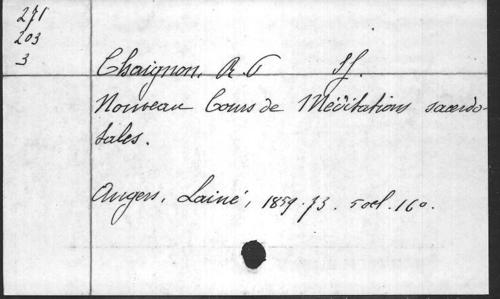 271
203
3
Chaignon. R. P. SJ.
Nouveau Cours de Méditations sacerdo-
tales.
Angers, Lainé, 1859-73. 5 vol. 16o.